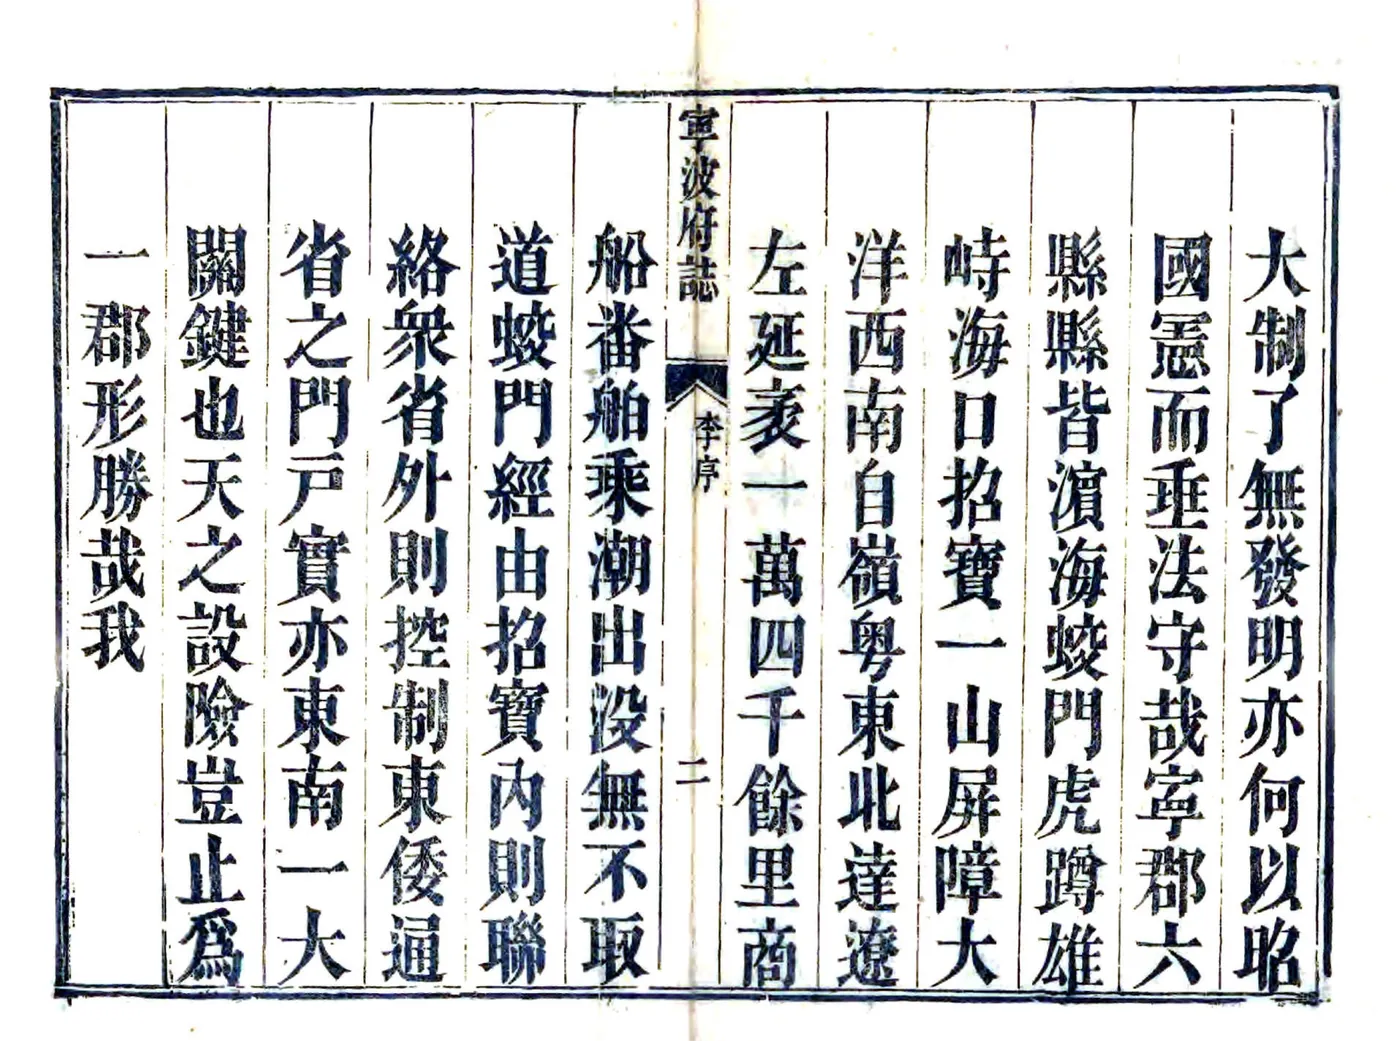 大制了無發明亦何以昭
國憲而垂法守哉寧郡六
縣縣皆濵海蛟門虎蹲雄
峙海口招寶一山屏障大
洋西南自嶺粤東北達遼
左延袤一萬四千餘里商
寧波府誌
李序
二
船番舶乘潮出没無不取
道蛟門經由招寶內則聯
絡衆省外則控制東倭通
省之門戸實亦東南一大
關鍵也天之設險豈止爲
一郡形勝哉我